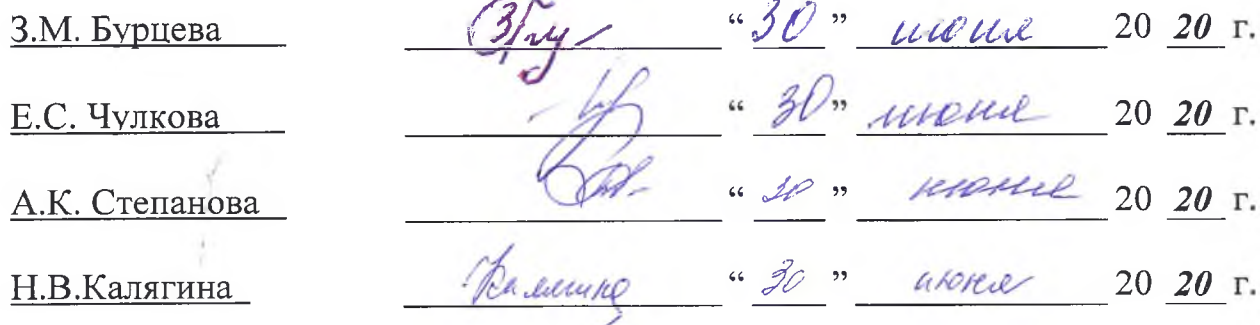 З.М. Бурцева “30” июня 20 20 г.
Е.С. Чулкова “30” июня 20 20 г.
А.К. Степанова “30” июня 20 20 г.
Н.В.Калягина Калягина “30” июня 20 20 г.